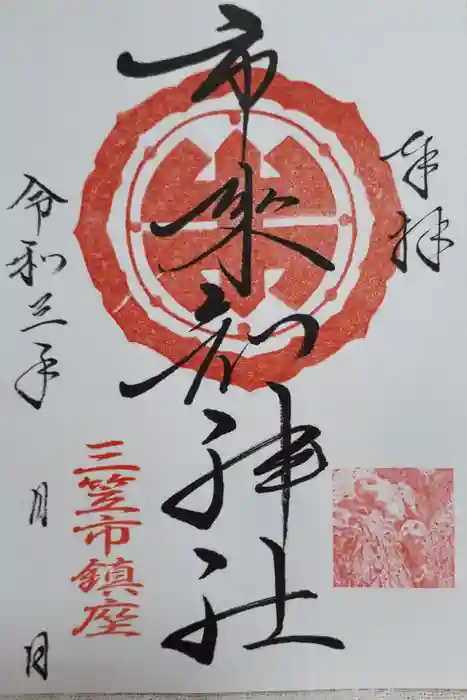 奉拝
市来知神社
三笠市鎮座
令和三年 月 日